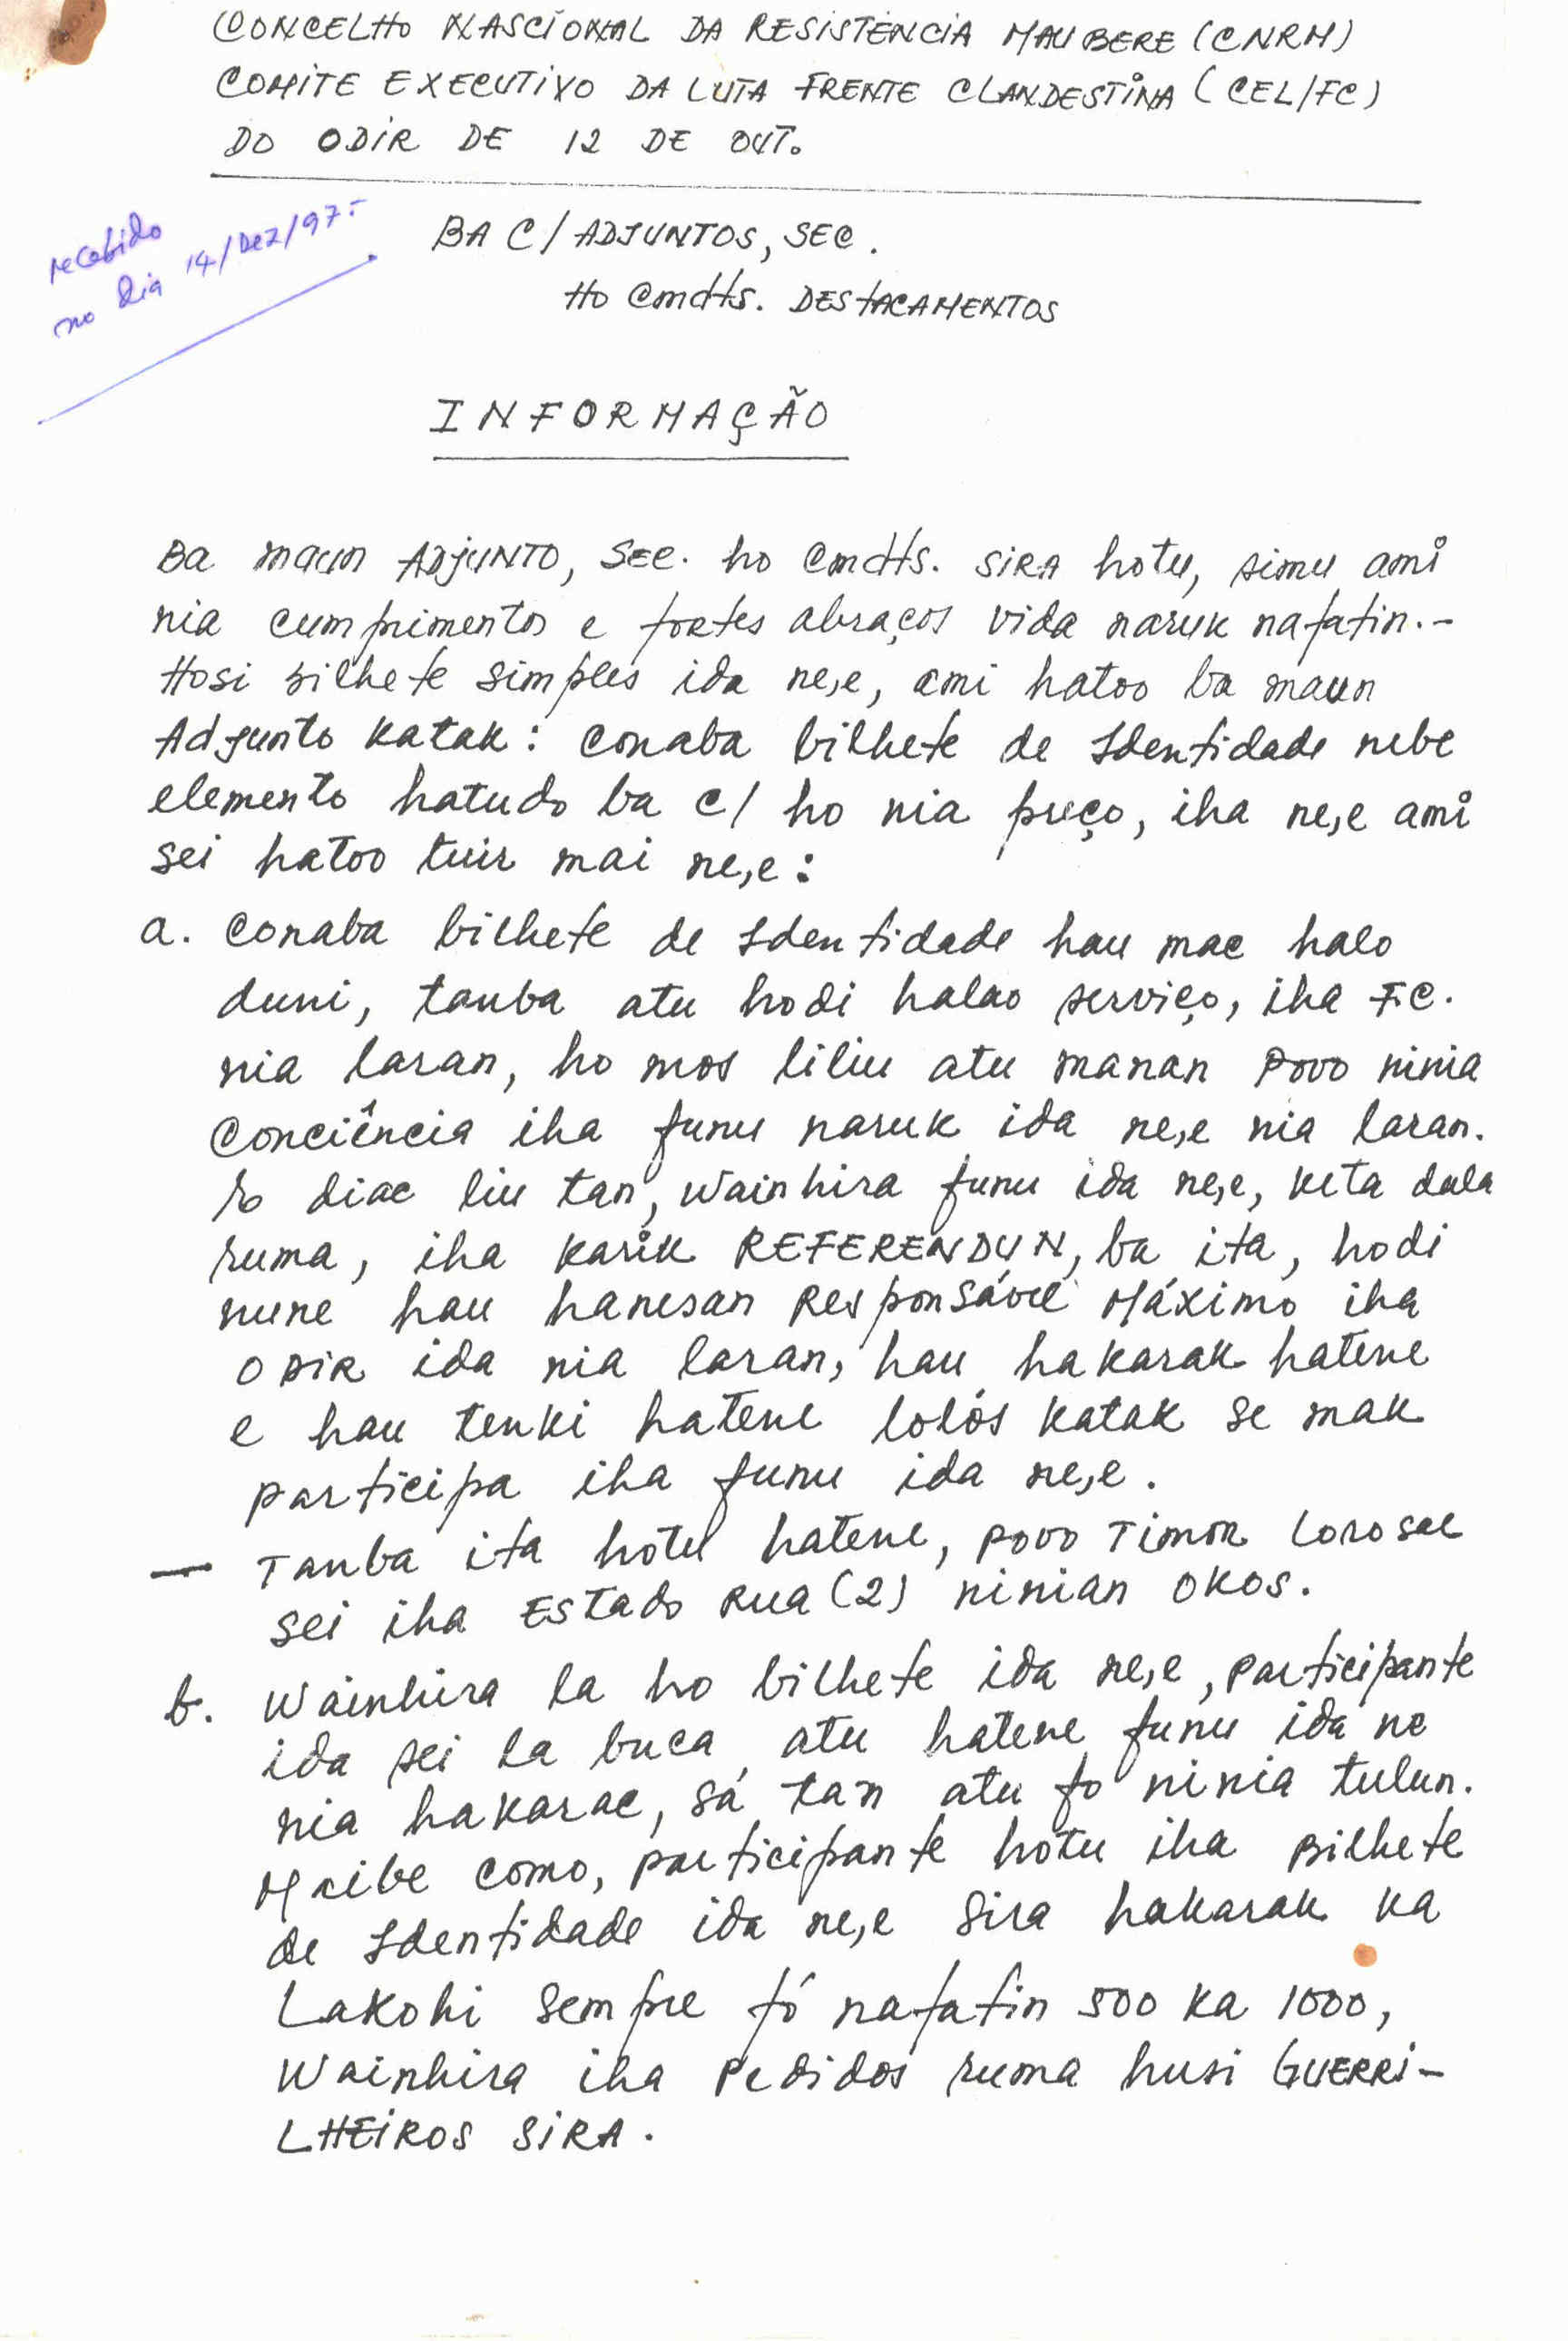 CONCELHO NASCIONAL DA RESISTÊNCIA MAUBERE (CNRM)
COMITE EXECUTIVO DA LUTA FRENTE CLANDESTINA (CEL/FC)
DO ODIR DE 12 DE OUT.
recebido
no dia 14/Dez/97.-
BA C/ADJUNTOS, SEC.
HO Cmdts. DESTACAMENTOS
INFORMAÇÃO
Ba maun ADJUNTO, SEC. ho Cmdts. SIRA hotu, simu ami
nia cumprimentos e fortes abraços vida naruk nafatin.-
Hosi bilhete simples ida ne,e, ami hatoo ba maun
Adjunto katak: conaba bilhete de Identidade nebe
elemento hatudo ba c/ ho nia preço, iha ne,e ami
sei hatoo tuir mai ne,e:
a. conaba bilhete de Identidade hau mac halo
duni, tanba atu hodi halao serviço, iha F.C.
nia laran, ho mos liliu atu manan Povo ninia
Conciência iha funu naruk ida ne,e nia laran.
So diac liu tan, wainhira funu ida ne,e, keta dala
ruma, iha karik REFERENDUN, ba ita, hodi
nune hau hanesan Responsável Máximo iha
ODIR ida nia laran, hau hakarak hatene
e hau tenki hatene lolós katak se mak
participa iha funu ida ne,e.
— Tanba ita hotu hatene, povo Timor Lorosae
sei iha Estado Rua (2) ninian okos.
b. Wainhira la ho bilhete ida ne,e, participante
ida sei la buca atu hatene funu ida ne
nia hakarac, sá tan atu fo ninia tulun.
Maibe como, participante hotu iha Bilhete
de Identidade ida ne,e sira hakarak ka
Lakohi sempre fó nafatin 500 ka 1000,
Wainhira iha Pedidos ruma husi GUERRI-
LHEIROS SIRA.